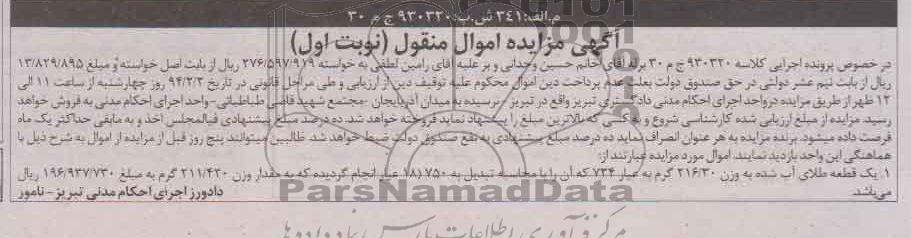 م.الف:۳۴۱ ش.ب:۹۳۰۳۲۰ ج م ۳۰
آگهی مزایده اموال منقول (نوبت اول)
در خصوص پرونده اجرایی کلاسه ۹۳۰۳۲۰ ج م ۳۰ برله آقای/خانم حسین وجدانی و بر علیه آقای رامین لطفی به خواسته ۲۷۶/۵۹۷/۹۱۹ ریال از بابت اصل خواسته و مبلغ ۱۳/۸۲۹/۸۹۵
ریال از بابت نیم عشر دولتی در حق صندوق دولت بعلت عدم پرداخت دین اموال محکوم علیه توقیف و پس از ارزیابی و طی مراحل قانونی در تاریخ ۹۴/۲/۲ روز چهارشنبه از ساعت ۱۱ الی
۱۲ ظهر از طریق مزایده در واحد اجرای احکام مدنی دادگستری تبریز واقع در تبریز - نرسیده به میدان آذربایجان -مجتمع شهید قاضی طباطبائی- واحد اجرای احکام مدنی به فروش خواهد
رسید. مزایده از مبلغ ارزیابی شده کارشناسی شروع و به کسی که بالاترین مبلغ را پیشنهاد نماید فروخته خواهد شد. ده درصد مبلغ پیشنهادی فی‌المجلس اخذ و به مابقی حداکثر یک ماه
فرصت داده میشود. برنده مزایده به هر عنوان انصراف نماید ده درصد مبلغ پیشنهادی به نفع صندوق دولت ضبط خواهد شد. طالبین میتوانند پنج روز قبل از مزایده از اموال به شرح ذیل با
هماهنگی این واحد بازدید نمایند. اموال مورد مزایده عبارتند از:
۱. یک قطعه طلای آب شده به وزن ۲۱۶/۳۰ گرم به عیار ۷۳۴ که آن را با محاسبه تبدیل به ۷۵۰ (۱۸ عیار انجام گردیده که به مقدار وزن ۲۱۱/۴۳۰ گرم به مبلغ ۱۹۶/۹۳۷/۷۳۰ ریال
می‌باشد. دادورز اجرای احکام مدنی تبریز - نامور
ParsNamadData
مرکز فرآوری اطلاعات پارس نماد داده ها